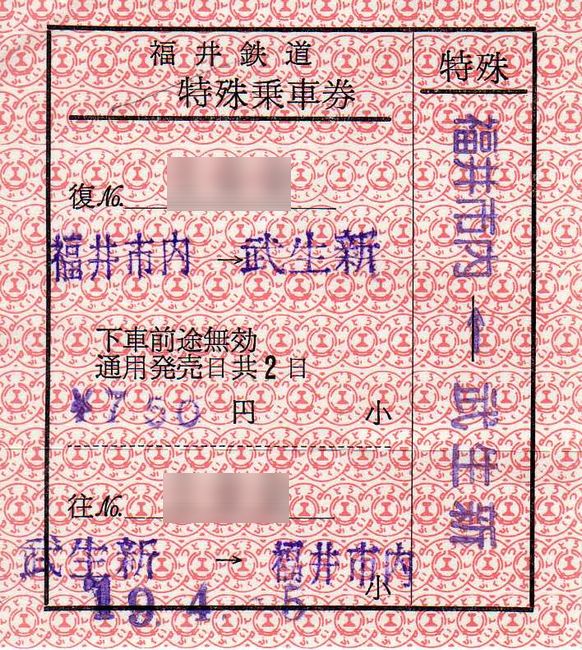 福井鉄道
特殊乗車券
復No.
福井市内→武生新
下車前途無効
通用発売日共2日
¥750円 小
往No.
武生新→福井市内
小
19.4.-5
特殊
福井市内←武生新